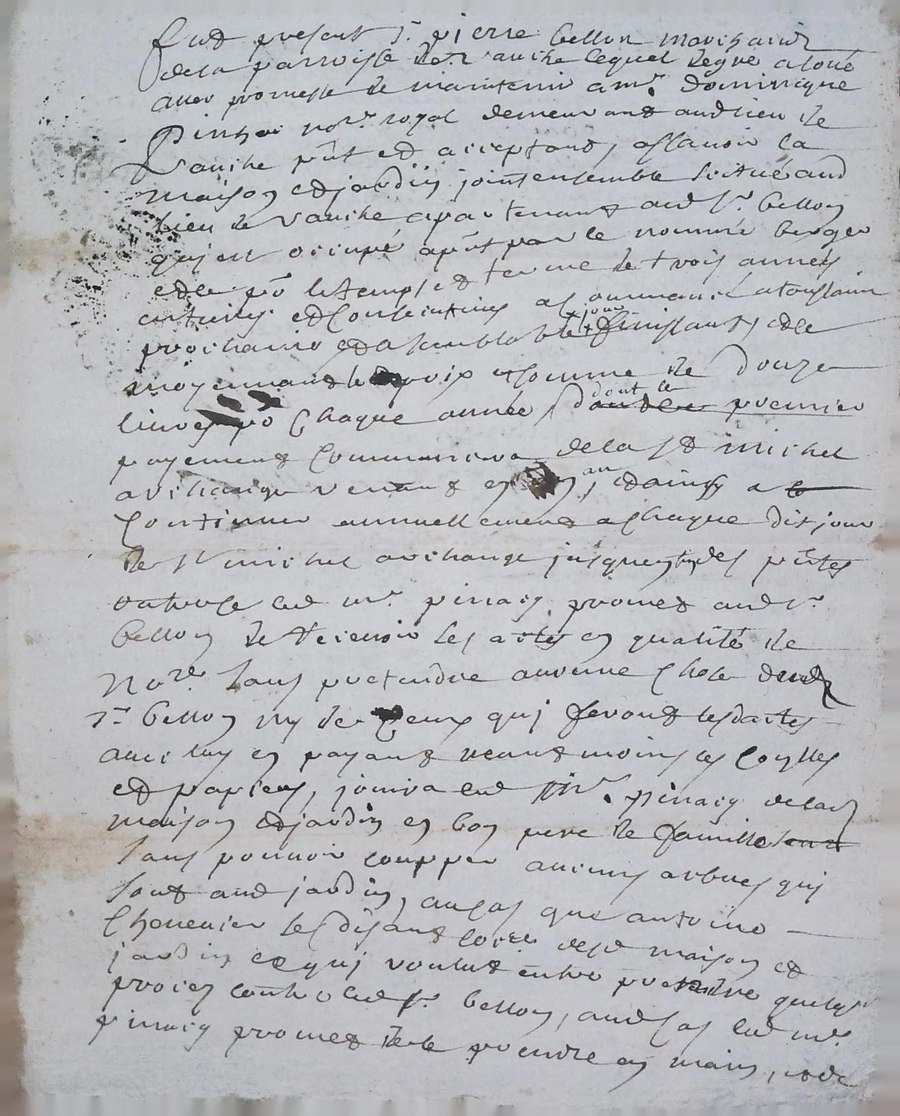 fut present Sr pierre bellon marchand
de la parroisse de Vauche lequel degré a loué
avec promesse de maintenir a mr. dominique
nore. royal demeurant aud lieu de
Vauche pnt et acceptant, assavoir la
maison et jardin joint ensemble situé aud
lieu de Vauche apartenant aud Sr. bellon
qui est occupé apnt par le nommé berger
et ce po le temps et terme de trois années
entieres et consecutives a commancé a la toussaint
prochaine et a semblable jour finissant, et ce
moyennant le prix et somme de douze
livres po chaque année, dont le premier
payement commancera de la St michel
archange venant en un an, et ainsy a
continuer annuellement a chaque dit jour
de St michel archange jusques des pntes
led mr. pinacq promet aud Sr.
bellon de recevoir les actes en qualité de
Nore. sans pretendre aucune chose dud
Sr. bellon ny de ceux qui feront lesd actes
avec luy en payant neantmoins les
et papiers, jouira led Mr. pinacq de lad
maison et jardin en bon pere de famille
sans pouvoir coupper aucuns arbres qui
sont aud jardin, au cas que antoine
se disant desd maison et
jardin et qui voulut entreprendre quelque
proces contre led Sr. bellon, aud cas led mr.
pinacq promet de le prendre en main, et de